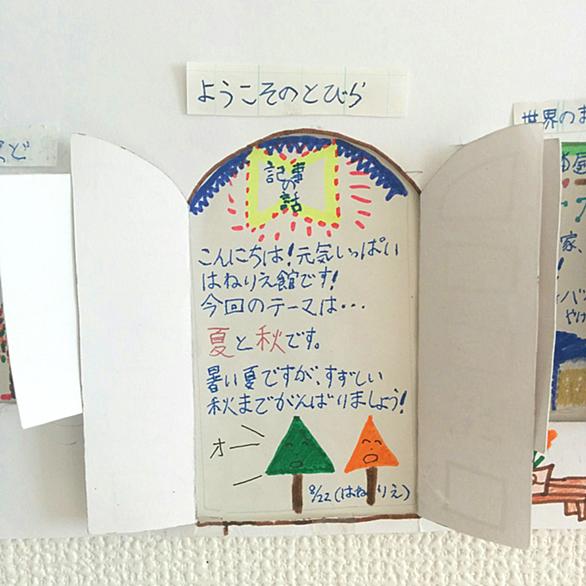 ようこそのとびら
記事
の
話
こんにちは!元気いっぱい
はねりえ館です!
今回のテーマは・・・
夏と秋です。
暑い夏ですが、すずしい
秋までがんばりましょう!
オー
8/22(はねりえ)
世界のま
家、